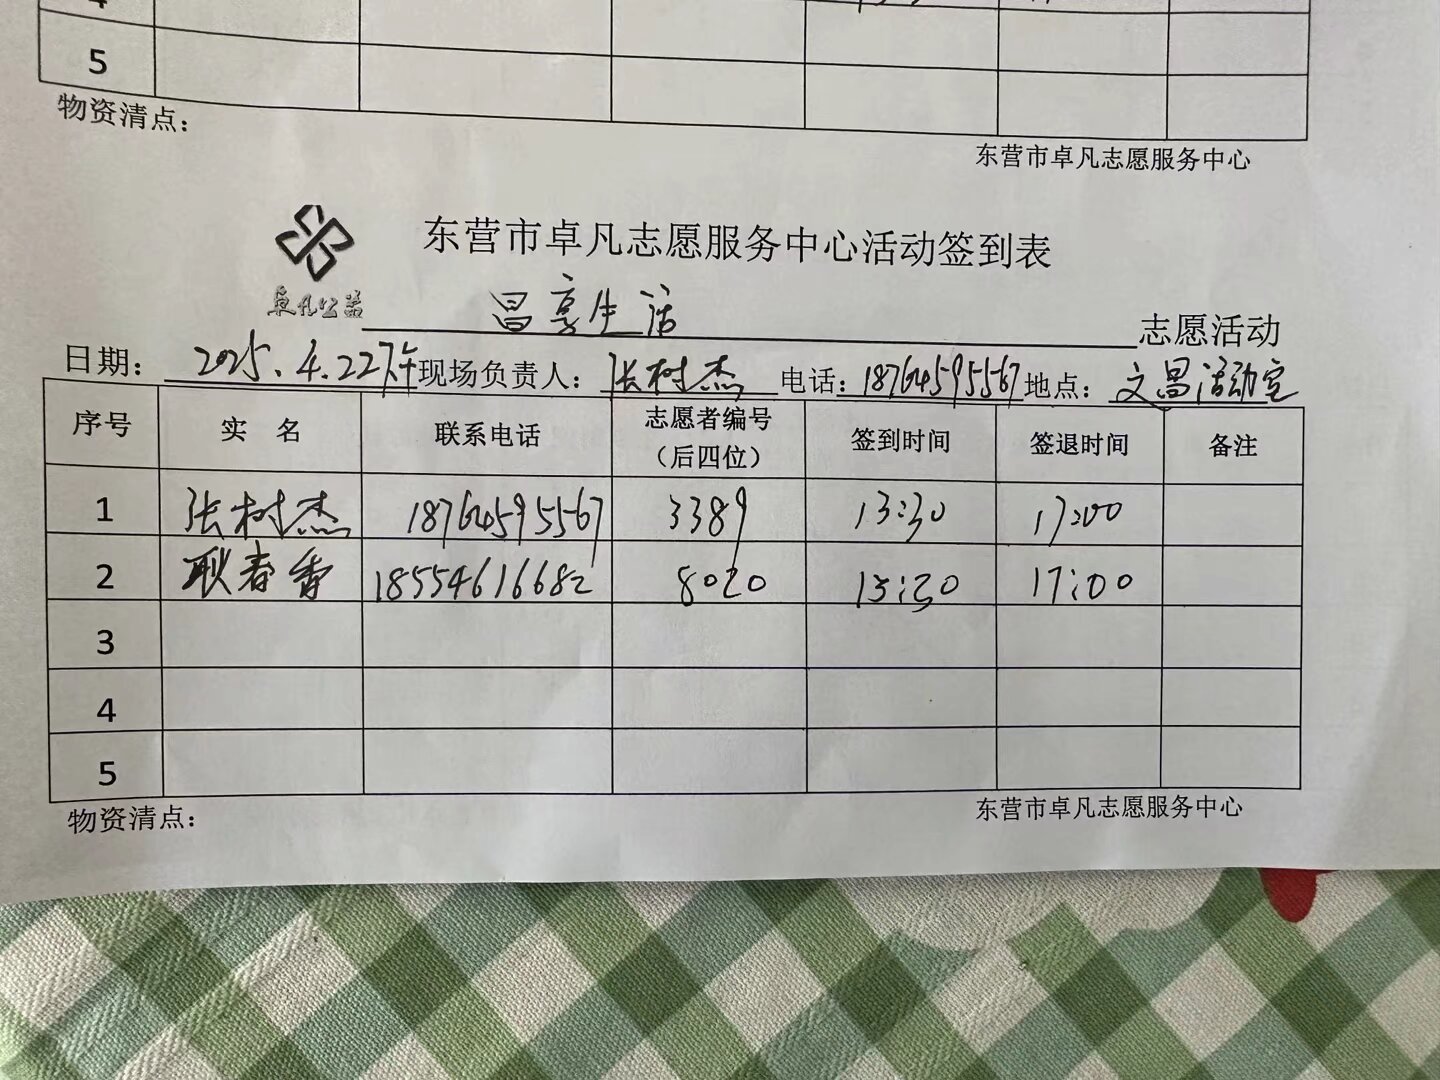 5
物资清点：
东营市卓凡志愿服务中心
东营市卓凡志愿服务中心活动签到表
卓凡公益
昌享生活 志愿活动
日期： 2025.4.22下午 现场负责人： 张树杰 电话： 18764595567 地点： 文昌活动室
序号 实 名 联系电话 志愿者编号（后四位） 签到时间 签退时间 备注
1 张树杰 18764595567 3389 13:30 17:00
2 耿春香 18554616682 8020 13:30 17:00
3
4
5
物资清点：
东营市卓凡志愿服务中心